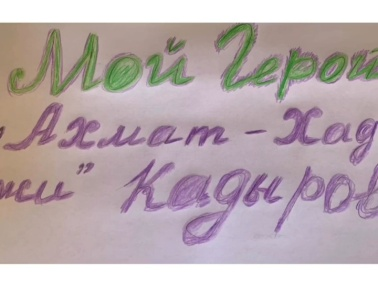 Мой Герой
„Ахмат-Хад
жи” Кадыров